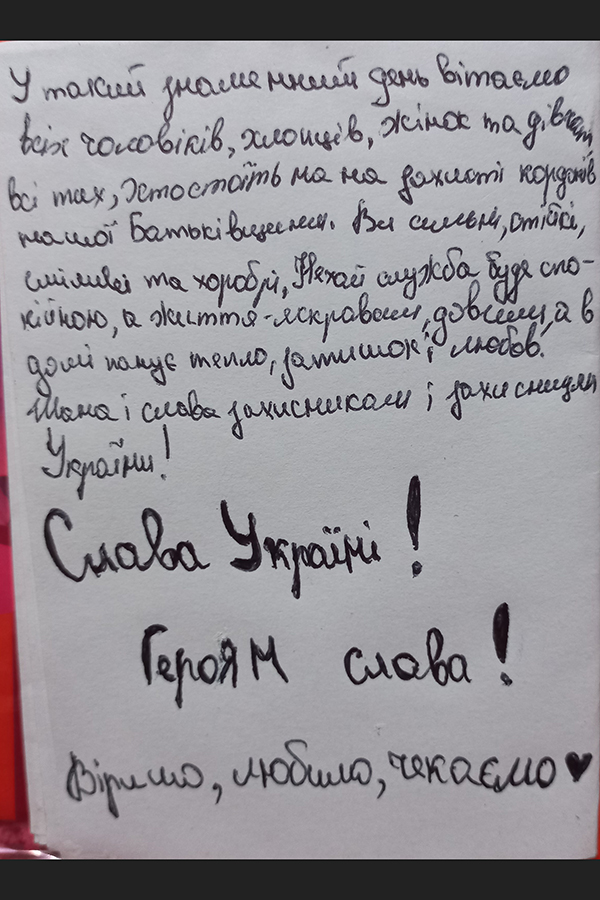 У такий знаменний день вітаємо
всіх чоловіків, хлопців, жінок та дівчат,
всі тих, хто стоїть на на захисті кордонів
нашої Батьківщини. Ви сильні, стійкі,
сміливі та хоробрі, Нехай служба буде спо-
кійною, а життя - яскравим, довгим, а в
домі панує тепло, затишок і любов.
Шана і слава захисникам і захисницям
України!
Слава Україні!
Героям слава!
Віримо, любимо, чекаємо♥